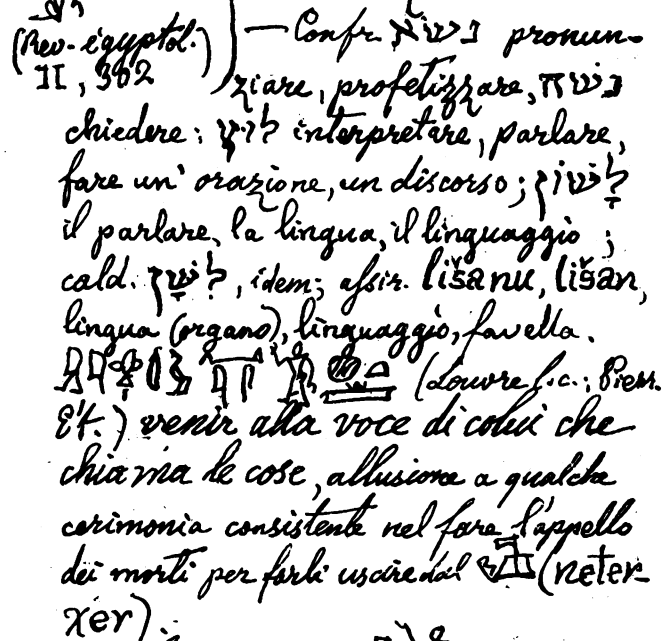 (Rev. égyptol.
II, 302) — Confr. נשׂא pronun-
ziare, profetizzare, נשׁה
chiedere: לוץ interpretare, parlare,
fare un' orazione, un discorso; לשׁון
il parlare, la lingua, il linguaggio;
cald. לשׁן, idem; assir. lišanu, lišan,
lingua (organo), linguaggio, favella.
(Louvre l.c.; Pierr.
Ét.) venir alla voce di colui che
chiama le cose, allusione a qualche
cerimonia consistente nel fare l'appello
dei morti per farli uscire dal (neter-
χer).